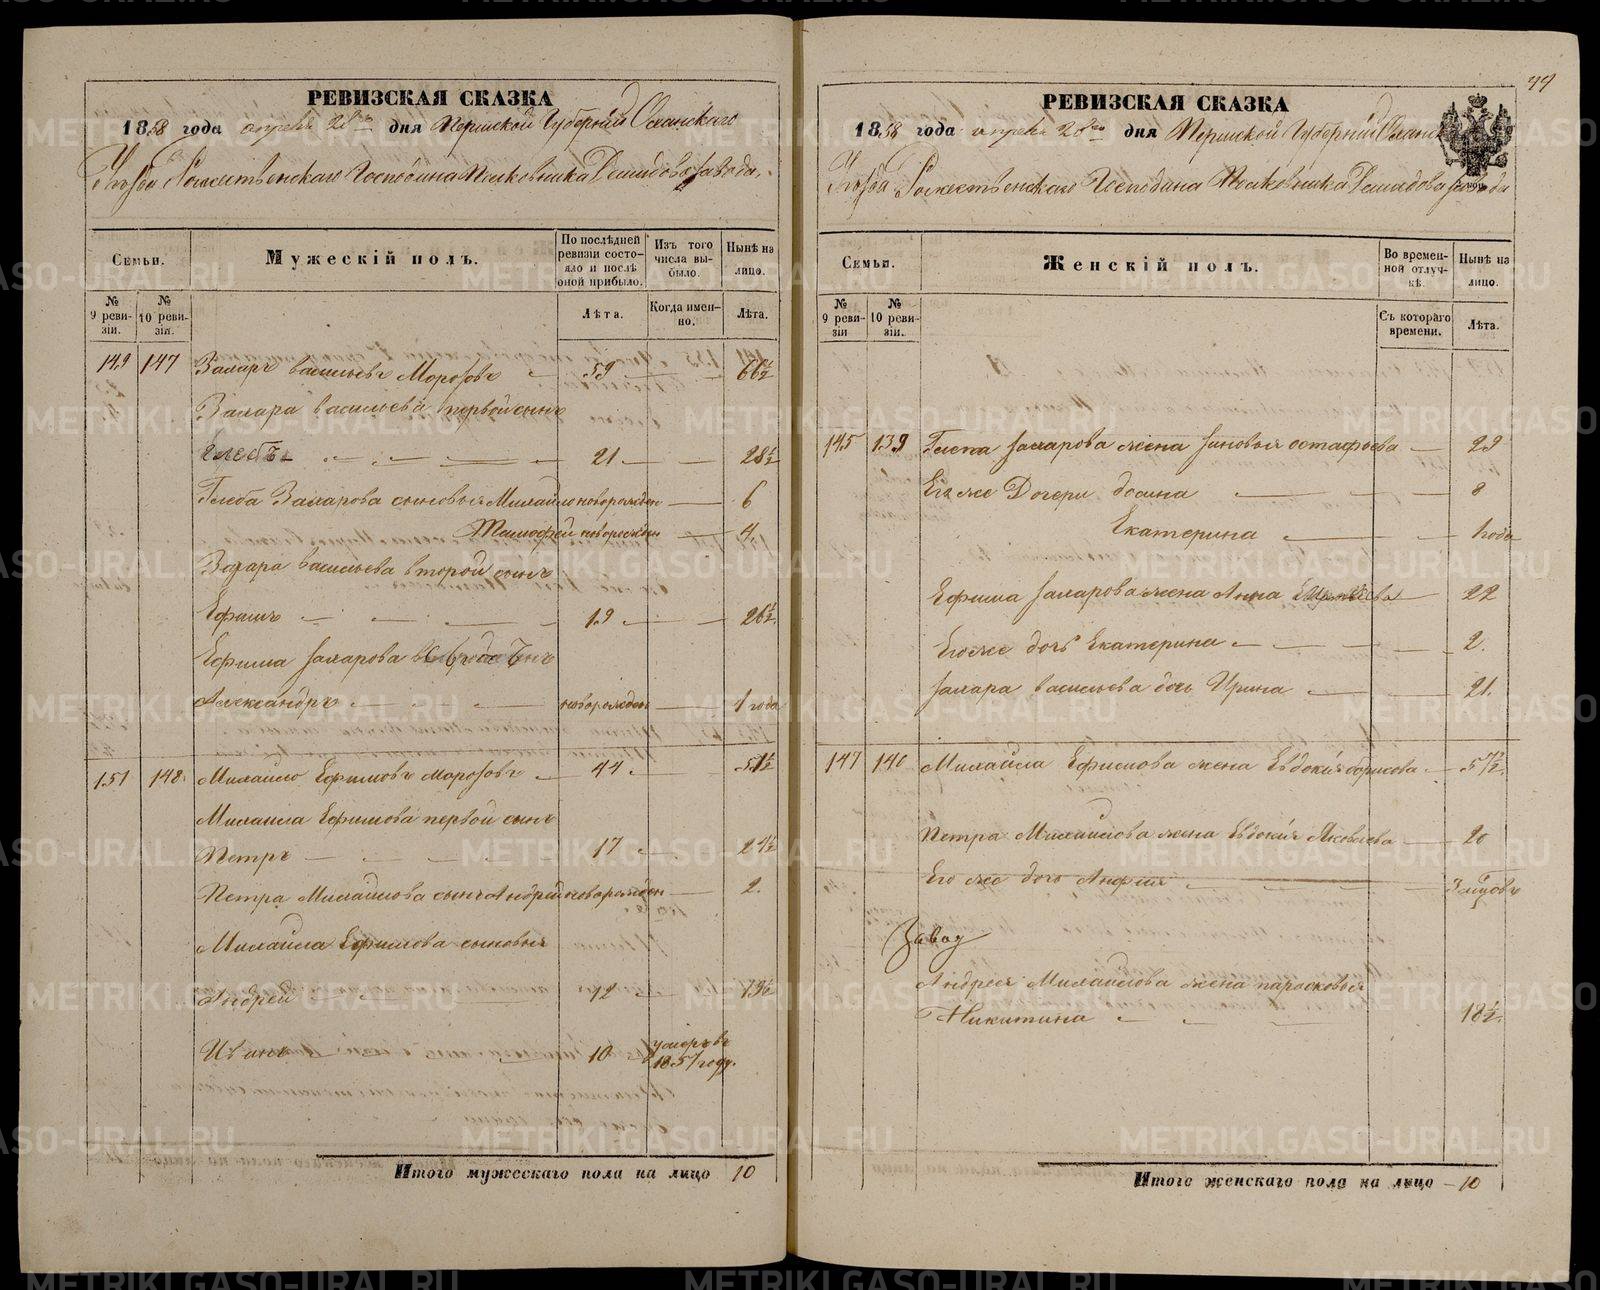 РЕВИЗСКАЯ СКАЗКА
1858 года апреля 28го дня Пермской Губернии Оханскаго
Уѣзда Рождественскаго Господина Полковника Демидова завода.
Семьи.
Мужескій полъ.
По послѣдней ревизіи состояло и послѣ оной прибыло.
Изъ того числа выбыло.
Нынѣ на лицо.
№ 9 ревизіи.
№ 10 ревизіи.
Лѣта.
Когда именно.
Лѣта.
149 147 Захаръ Васильевъ Морозовъ 59 66½
Захара Васильева первой сынъ
Глебъ 21 28½
Глеба Захарова сыновья Михайло новорожден 6
Тимофей новорожден 4
Захара Васильева второй сынъ
Ефимъ 19 26½
Ефима Захарова сынъ
Александръ новорожден 1 года
151 148 Михайло Ефимовъ Морозовъ 44 51½
Михаила Ефимова первой сынъ
Петръ 17 24½
Петра Михайлова сынъ Андрей новорожден 2.
Михаила Ефимова сыновья
Андрей 12 19½
Иванъ 10 умеръ въ 1857 году.
Итого мужескаго пола на лицо 10
44
РЕВИЗСКАЯ СКАЗКА
1858 года апреля 28го дня Пермской Губернии Оханск
Уѣзда Рождественскаго Господина Полковника Демидова завода
Семьи.
Женскій полъ.
Во временной отлучкѣ.
Нынѣ на лицо.
№ 9 ревизіи
№ 10 ревизіи.
Съ котораго времени.
Лѣта.
145 139 Глеба Захарова жена Зиновья Остафьева 29
Его же Дочери Домна 8
Екатерина 1 года
Ефима Захарова жена Анна 22
Его же дочь Екатерина 2.
Захара Васильева дочь Ирина 21.
147 140 Михайла Ефимова жена Евдокия Борисова 57½
Петра Михайлова жена Евдокия Яковлева 20
Его же дочь Анфия
Завод
Андрея Михайлова жена Парасковья
Никитина 18½
Итого женскаго пола на лицо 10
METRIKI.GASO-URAL.RU